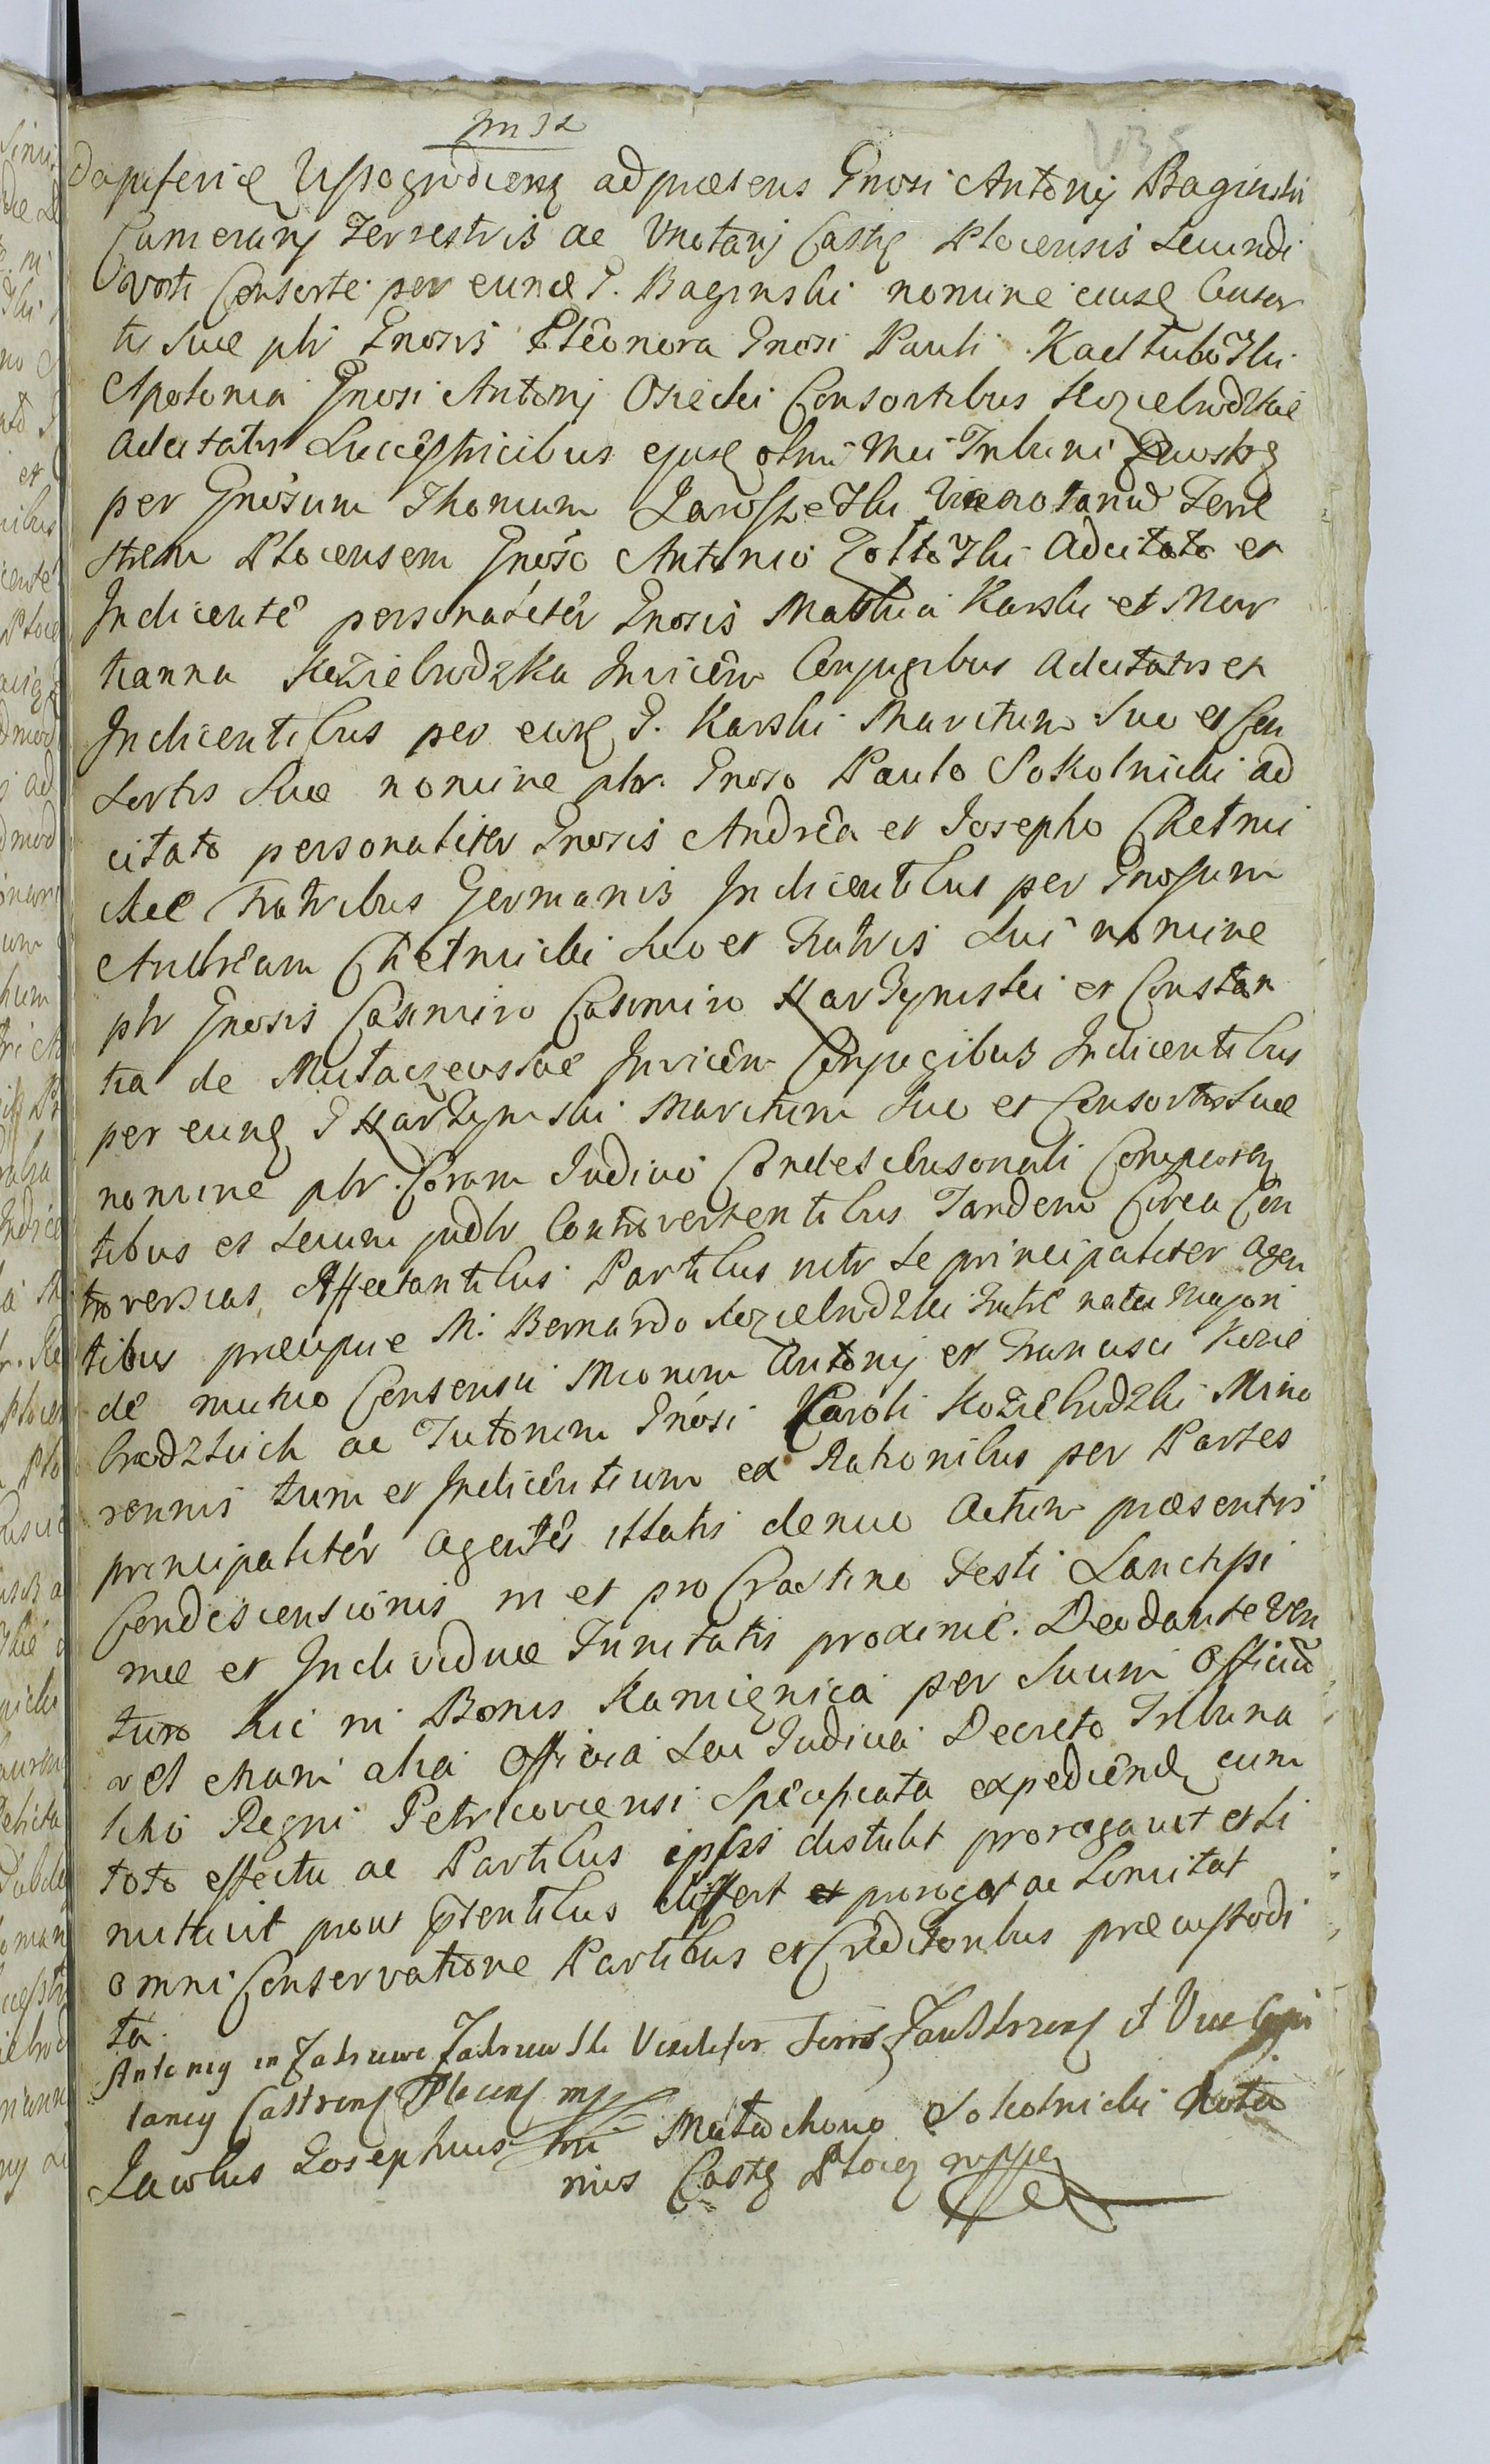 Dapiferiæ Wyssogrodiensę ad præsens Gnosi Antonij Baginski
Camerarij Terrestris ac Vnotarij Castrę Plocensis Secundi
voti Consorte per eund G. Baginski nomine ejusd Consor
tis Suæ pltr Gnosis Eleonora Gnosi Pauli
Apolonia Gnosi Antonij Osiecki Consortibus Koziebrodzkie
Adcitatis Successtricibus ejusd olim Mci Tribuni
per Gnosum Thomam Vicenotariu Terre
strem Plocensem Gnoso Antonio Adcitato et
Indicente personaliter Gnosis Mathia Karski et Mar
tianna Koziebrodzka Invicem Conjugibus Adcitatis et
Indicentibus per eund G. Karski Maritum Suo et Con
sortis Suæ nomine pltr. Gnoso Paulo Sokolnicki ad
citato personaliter Gnosis Andrea et Josepho Chełmi
ckie Fratribus Germanis Indicentibus per Gnosum
Andream Chełmicki Suo et Fratris Sui nomine
pltr Gnosis Casimiro Casimiro et Constan
tia de Invicem Conjugibus Indicentibus
per eund G Maritum Suo et Consortis Suæ
nomine pltr. Coram Judicio Condescensonali Comparen
tibus et Secum judtr Controvertentibus Tandem Circa Con
troversias, Affectantibus Partibus intr se principaliter agen
tibus præcipue M. Bernardo Koziebrodzki Fratre natu Majori
de mutuo Consensu Mcorum Antonij et Francisci Kozie
brodzkich ac Tutorum Gnosi Caroli Koziebrodzki Mino
rennis tum et Indicentium ex Rationibus per Partes
principaliter Agentes illatis denuo Actum præsentis
Condescensionis in et pro Crastino Festi Sanctissi
mæ et Individuæ Trinitatis proxime. Deo dante Ven
turo hic in Bonis Kamięnica per Suum Officiu
vel etiam alia Officia Seu Judicia Decreto Tribuna
licio Regni Petricoviensi Specificata expediend cum
toto effectu ac Partibus ipsis distulit prorogavit et li
mitavit prout pntentibus differt et prorogat ac limitat
omni Conservatione Partibus et Creditoribus præcustodi
ta.
Antonig in Zakrzewo Zakrzewski
Castrensę Plocensę mpp
Jacobus Josephus in Małachowo Sokolnicki Nota
rius Castrę Plocę mppa